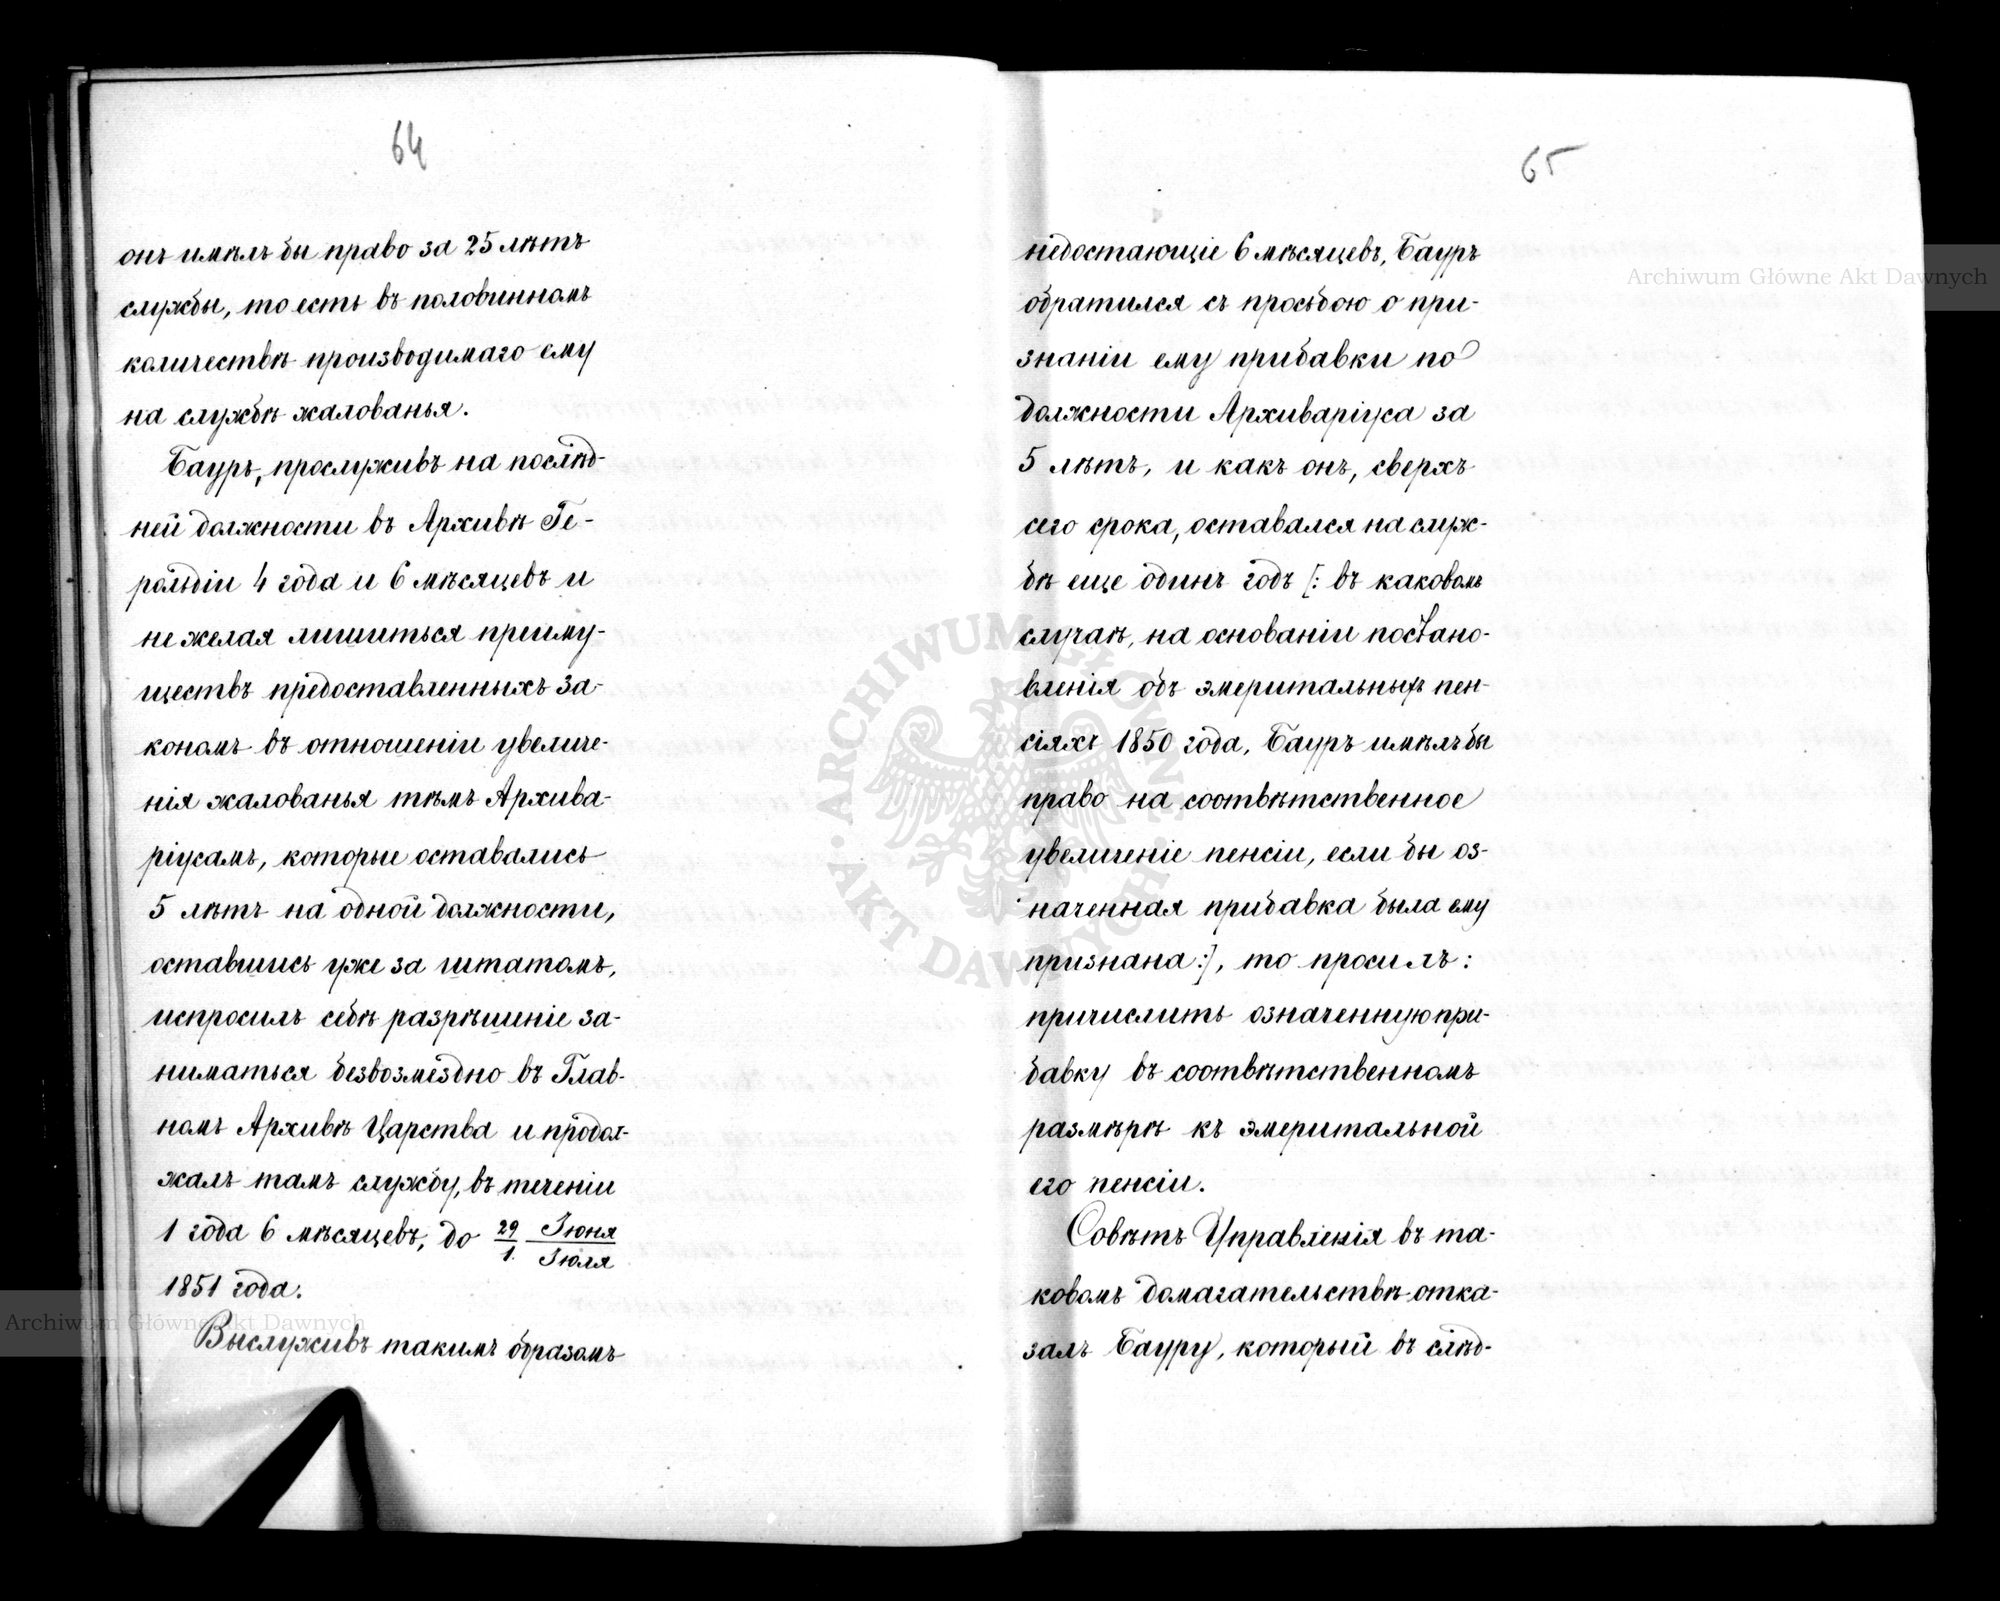 64
онъ имѣлъ бы право за 25 лѣтъ
службы, то есть въ половинномъ
количествѣ производимаго ему
на службѣ жалованья.
Бауръ, прослуживъ на послѣд-
ней должности въ Архивѣ Ге-
рольдіи 4 года и 6 мѣсяцевъ и
не желая лишиться преиму-
ществъ предоставленныхъ за-
кономъ въ отношеніи увеличе-
нія жалованья тѣмъ Архива-
ріусамъ, которые оставались
5 лѣтъ на одной должности,
оставшись уже за штатомъ,
испросилъ себѣ разрѣшеніе за-
ниматься безвозмездно въ Глав-
номъ Архивѣ Царства и продол-
жалъ тамъ службу, въ теченіи
1 года 6 мѣсяцевъ, до 29 Іюня / 1. Іюля
1851 года.
Выслуживъ такимъ образомъ
65
недостающіе 6 мѣсяцевъ, Бауръ
обратился съ просьбою о при-
знаніи ему прибавки по
должности Архиваріуса за
5 лѣтъ, и какъ онъ, сверхъ
сего срока, оставался на служ-
бѣ еще одинъ годъ [: въ каковомъ
случаѣ, на основаніи постано-
вленія объ эмеритальныхъ пен-
сіяхъ 1850 года, Бауръ имѣлъ бы
право на соотвѣтственное
увеличеніе пенсіи, если бы оз-
наченная прибавка была ему
признана :], то просилъ:
причислить означенную при-
бавку въ соотвѣтственномъ
размѣрѣ къ эмеритальной
его пенсіи.
Совѣтъ Управленія въ та-
ковомъ домагательствѣ отка-
залъ Бауру, который въ слѣд-
Archiwum Główne Akt Dawnych
Archiwum Główne Akt Dawnych
ARCHIWUM GŁÓWNE AKT DAWNYCH